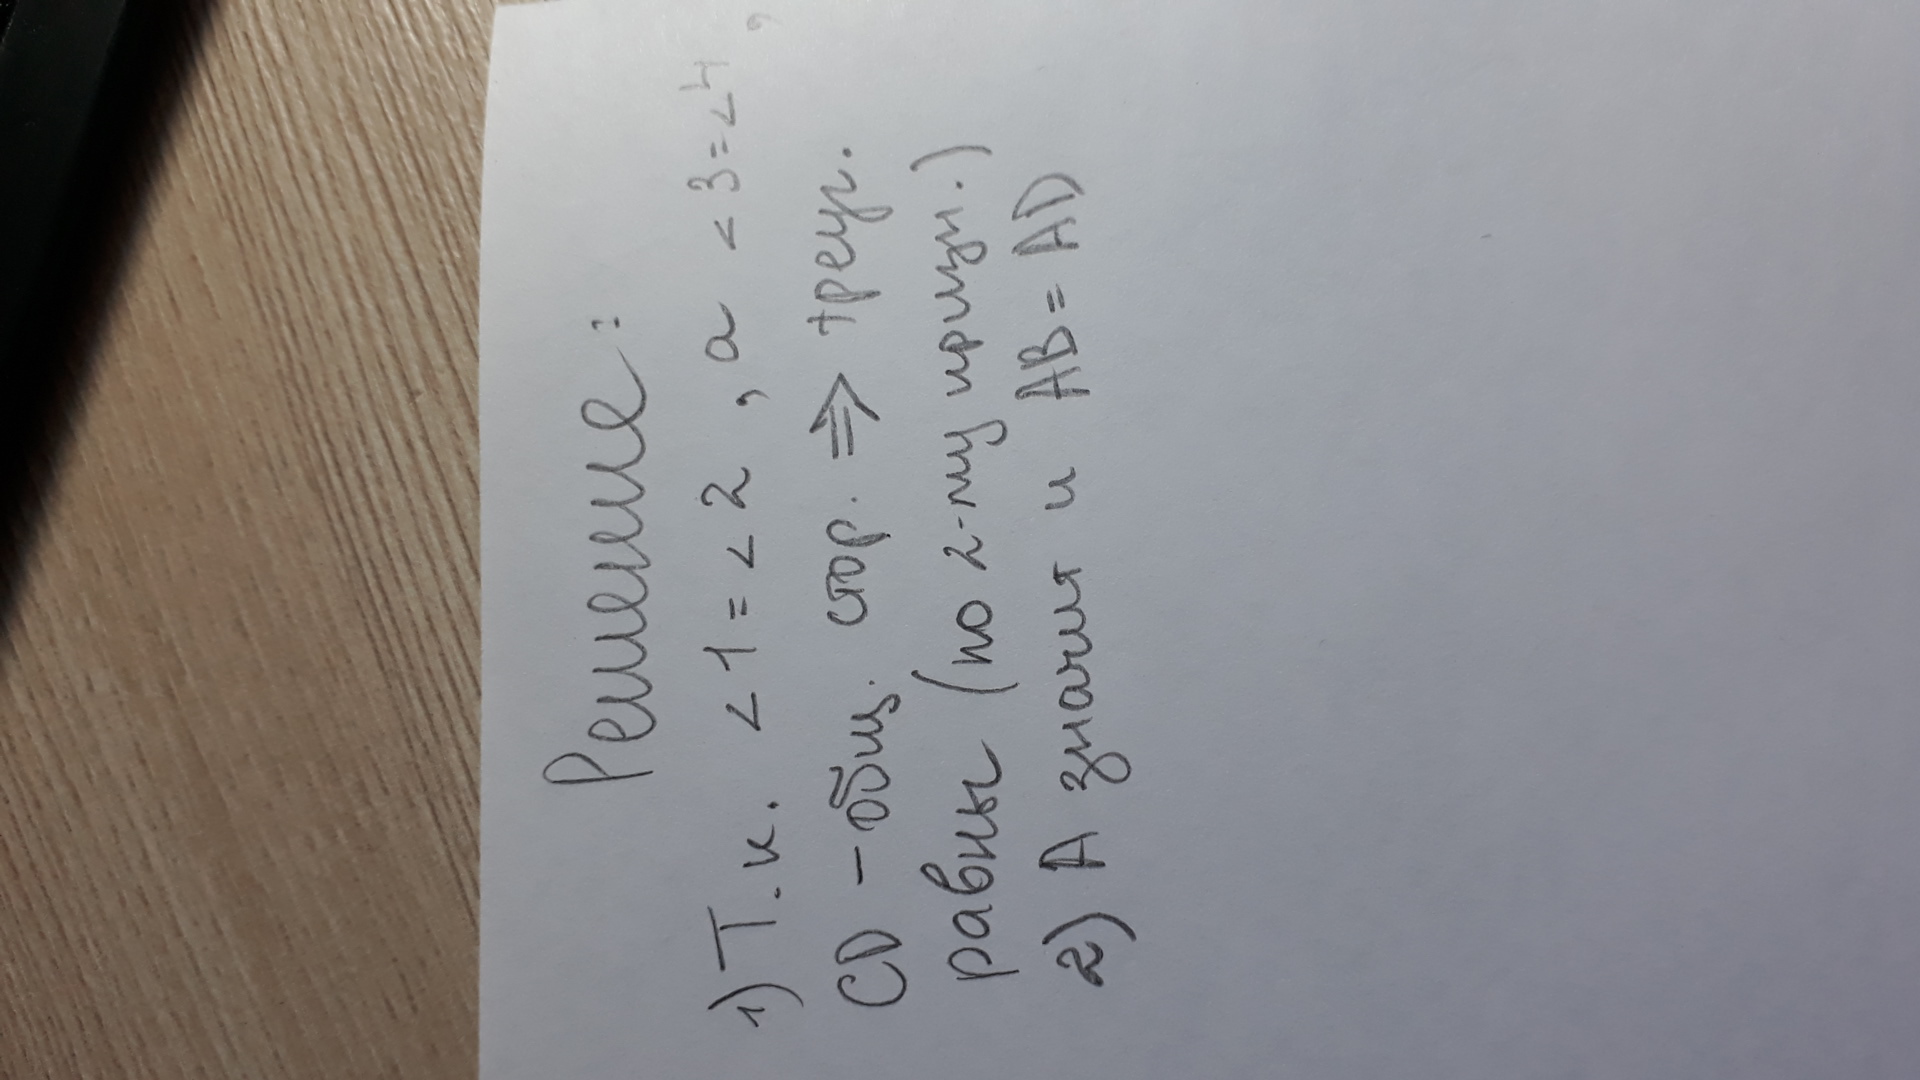 Решение:
1) Т.к. <1=<2, а <3=<4,
CD - общ. стор. => треуг.
равны (по 2-му призн.)
2) А значит и AB=AD